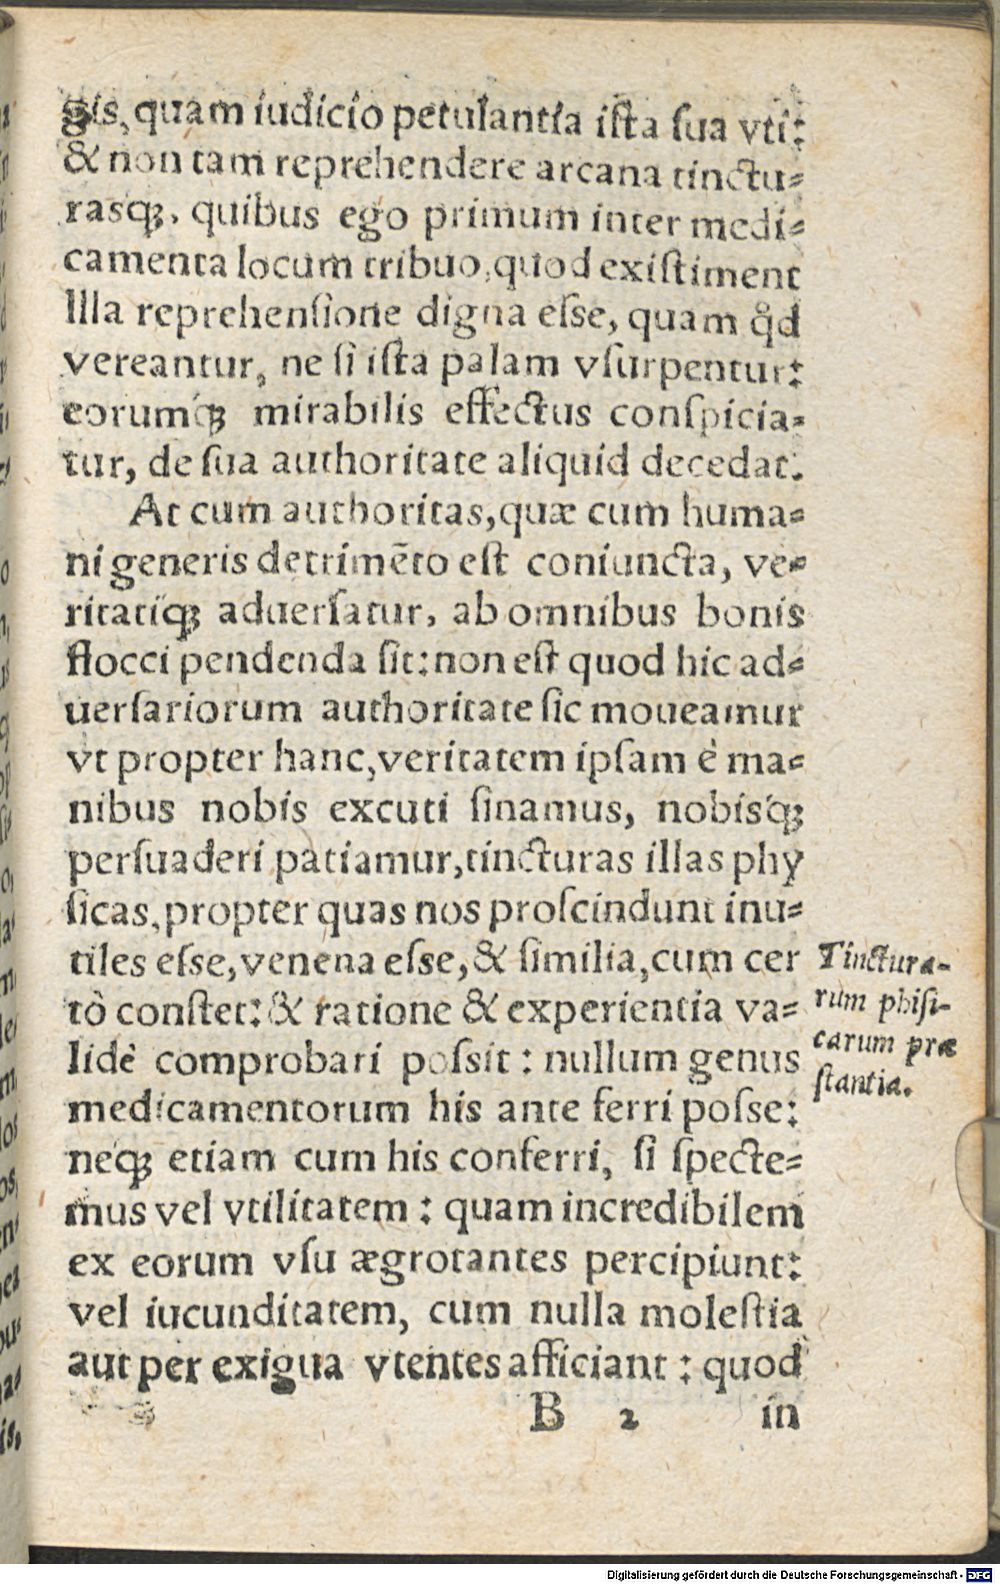 gis, quam iudicio petulantia iſta ſua vti:
& non tam reprehendere arcana tinctu⸗
rasq́ꝫ, quibus ego primum inter medi⸗
camenta locum tribuo, quod exiſtiment
Illa reprehenſione digna eſse, quam qđ
vereantur, ne ſi iſta palam vſurpentur:
eorumq́ꝫ mirabilis effectus conſpicia⸗
tur, de ſua authoritate aliquid decedat.
At cum authoritas, quæ cum huma⸗
ni generis detrimẽto eſt coniuncta, ve⸗
ritatiq́ꝫ aduerſatur, ab omnibus bonis
flocci pendenda ſit: non eſt quod hic ad⸗
uerſariorum authoritate ſic moueamur
vt propter hanc, veritatem ipſam è ma⸗
nibus nobis excuti ſinamus, nobisq́ꝫ
perſuaderi patiamur, tincturas illas phy
ſicas, propter quas nos proſcindunt inu⸗
tiles eſse, venena eſse, & ſimilia, cum cer
tò conſtet: & ratione & experientia va⸗
lidè comprobari poſsit: nullum genus
medicamentorum his ante ferri poſse:
neq́ꝫ etiam cum his conferri, ſi ſpecte⸗
mus vel vtilitatem: quam incredibilem
ex eorum vſu ægrotantes percipiunt:
vel iucunditatem, cum nulla moleſtia
aut per exigua vtentes afficiant: quod
B 2 in
Tinctura-
rum phiſi-
carum præ
ſtantia.
Digitalisierung gefördert durch die Deutsche Forschungsgemeinschaft - DFG